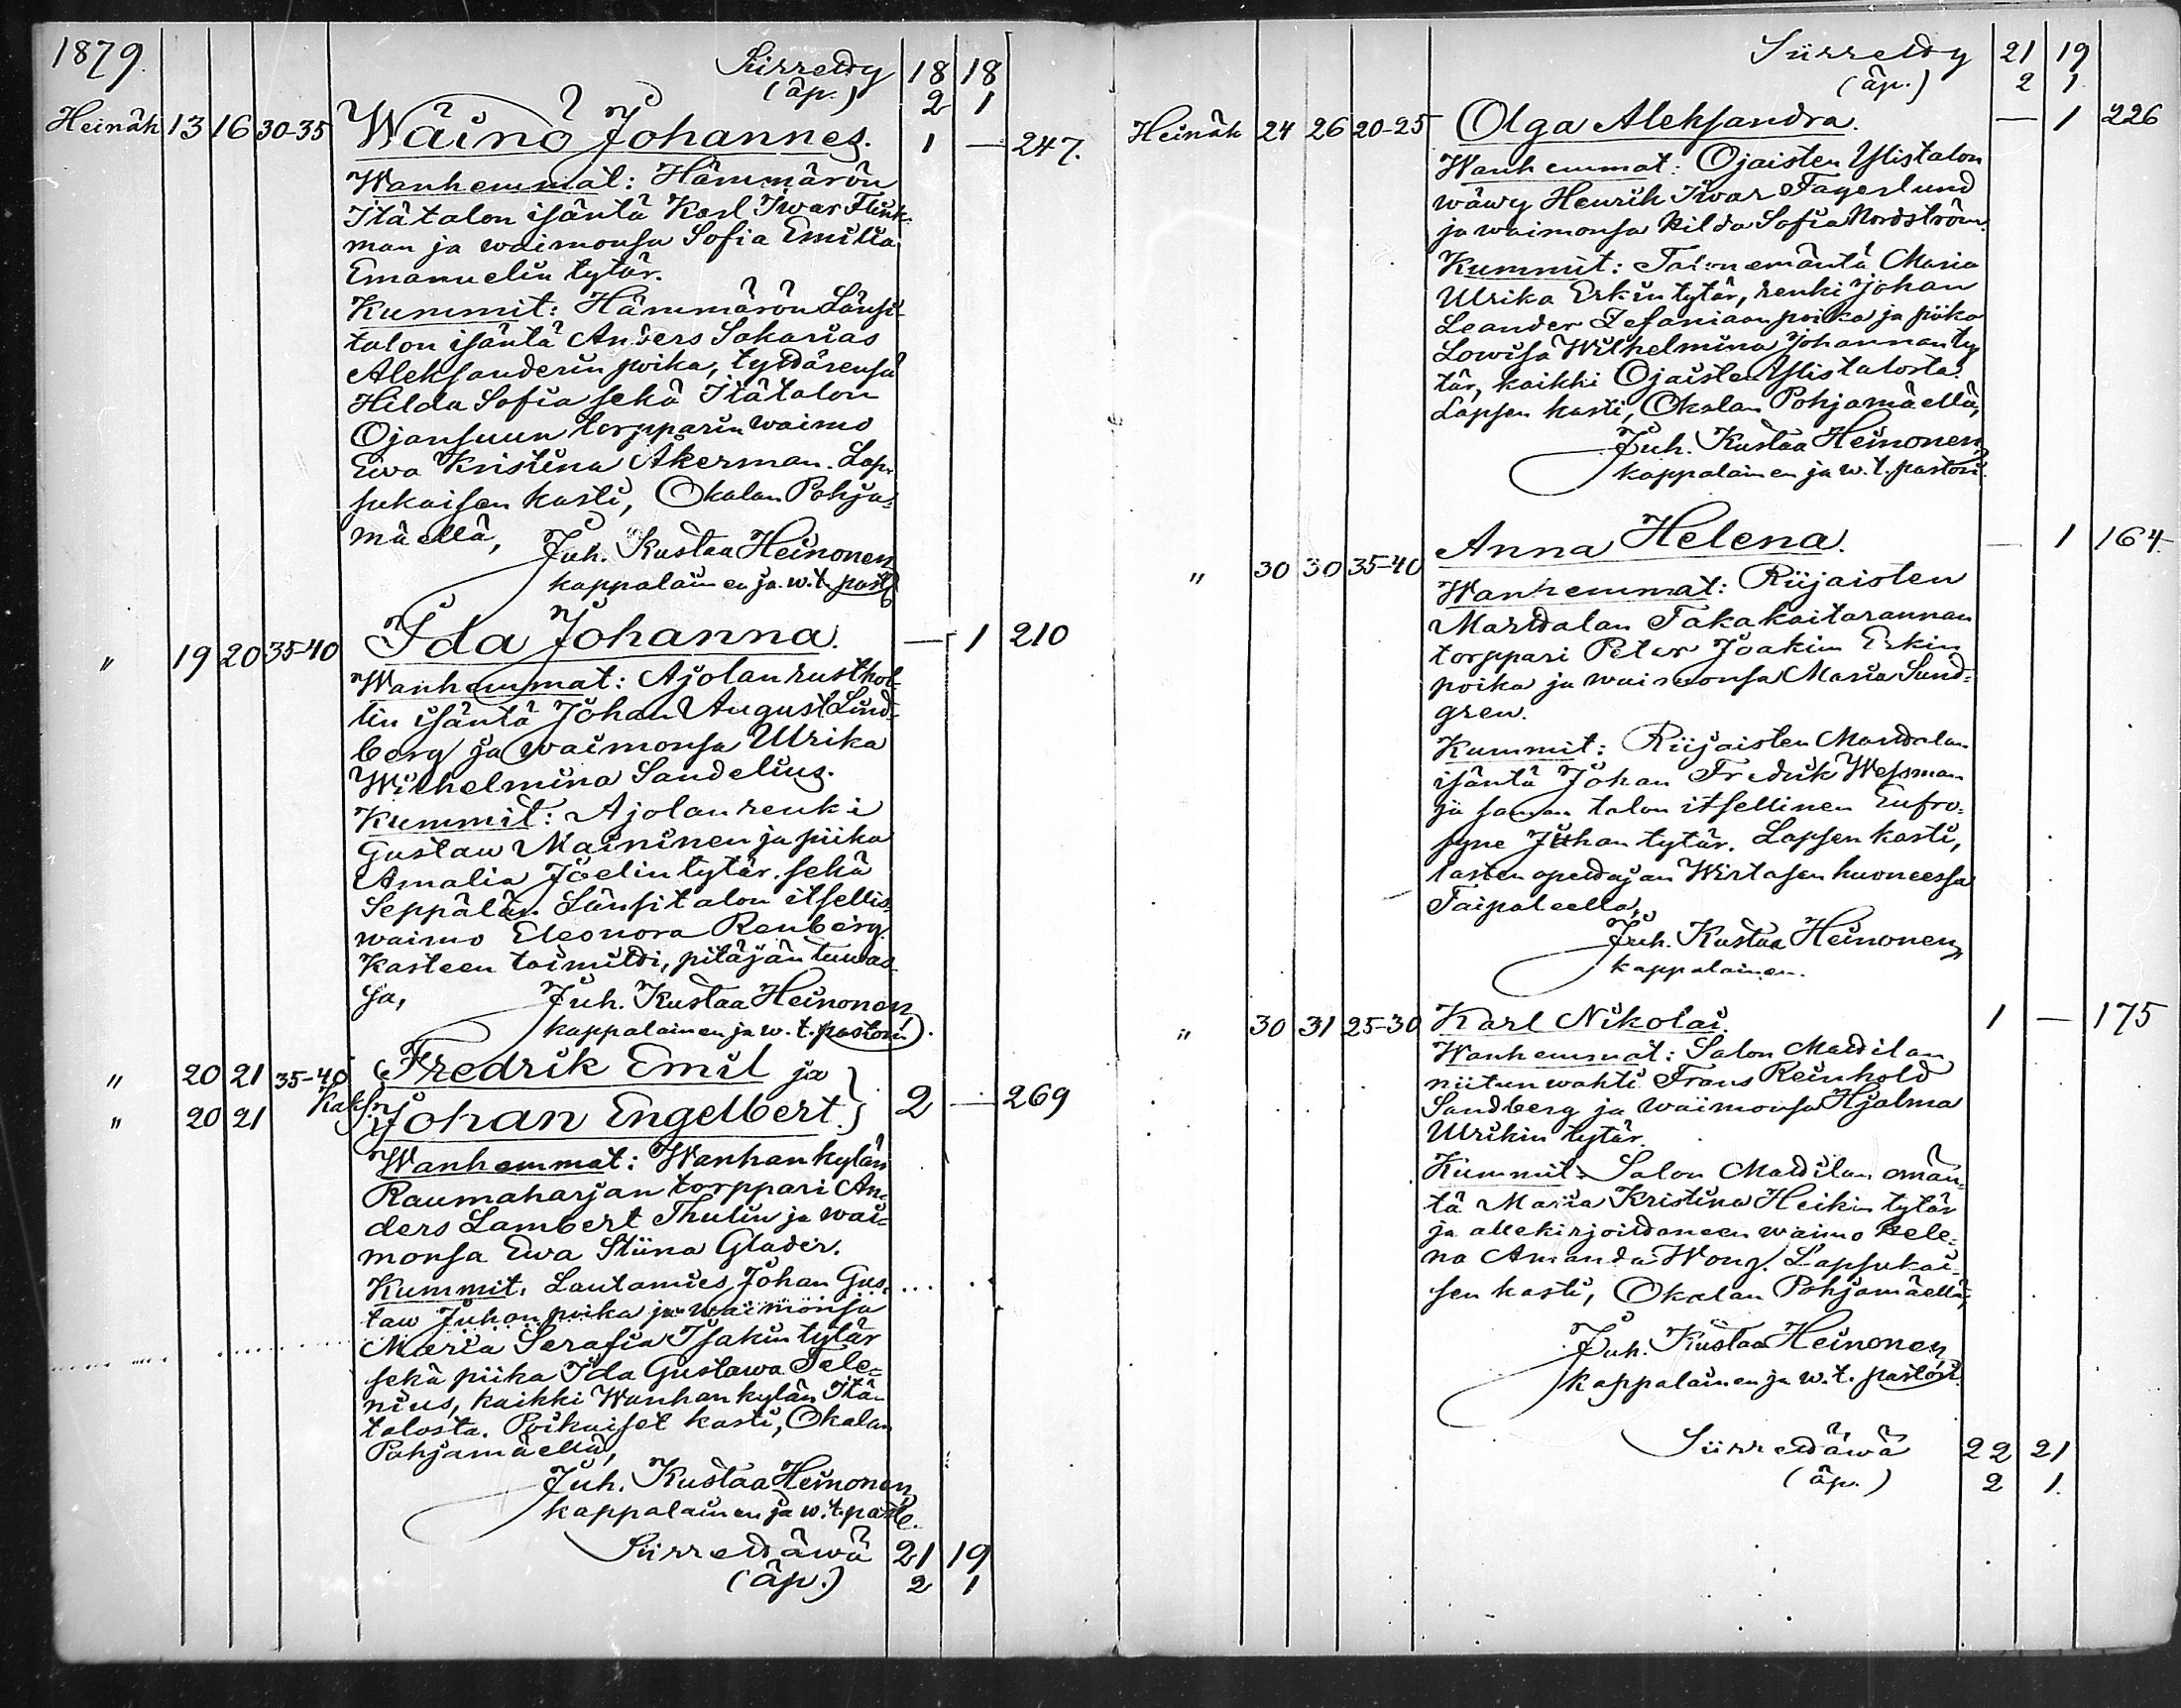 1879.
Siirretty 18 18
(äp.) 2 1
Heinäk 13 16 30-35 Wäinö Johannes. 1 — 247.
Wanhemmat: Hämmärön
Itätalon isäntä Karl Iwar Flink-
man ja waimonsa Sofia Emilia
Emanuelin tytär.
Kummit: Hämmärön Länsi-
talon isäntä Anders Sakarias
Aleksanderin poika, tyttärensä
Hilda Sofia sekä Itätalon
Ojansuun torpparin waimo
Ewa Kristina Åkerman. Lap-
sukaisen kasti, Okalan Pohja-
mäellä,
Juh. Kustaa Heinonen
kappalainen ja w.t. past.
" 19 20 35-40 Ida Johanna. — 1 210
Wanhemmat: Ajolan rusthol-
lin isäntä Johan August Lind-
berg ja waimonsa Ulrika
Wilhelmina Sandelius.
Kummit: Ajolan renki
Gustaw Maininen ja piika
Amalia Joelin tytär, sekä
Seppälän Länsitalon itsellis-
waimo Eleonora Renberg.
Kasteen toimitti, pitäjän tuwas-
sa,
Juh. Kustaa Heinonen,
kappalainen ja w.t. pastori.
" 20 21 35-40 Fredrik Emil ja
" 20 21 Kaks. Johan Engelbert. 2 — 269
Wanhemmat: Wanhankylän
Raumaharjan torppari An-
ders Lambert Thulin ja wai-
monsa Ewa Stiina Glader.
Kummit: Lautamies Johan Gus-
taw Juhan poika ja waimonsa
Maria Serafia Isakin tytär
sekä piika Ida Gustawa Tele-
nius, kaikki Wanhankylän Itä-
talosta. Poikaiset kasti, Okalan
Pohjamäellä,
Juh. Kustaa Heinonen,
kappalainen ja w.t. past.
Siirrettäwä 21 19
(äp.) 2 1
Siirretty 21 19
(äp.) 2 1
Heinäk 24 26 20-25 Olga Aleksandra. — 1 226
Wanhemmat: Ojaisten Ylistalon
wäwy Henrik Iwar Fagerlund
ja waimonsa Hilda Sofia Nordström.
Kummit: Talon emäntä Maria
Ulrika Erkin tytär, renki Johan
Leander Zefaniaan poika ja piika
Lowisa Wilhelmina Johannan ty-
tär, kaikki Ojaisten Ylistalosta.
Lapsen kasti, Okalan Pohjamäellä,
Juh. Kustaa Heinonen,
kappalainen ja w.t. pastori.
" 30 30 35-40 Anna Helena. — 1 164.
Wanhemmat: Riijaisten
Marttalan Takakaitarannan
torppari Peter Joakim Erkin
poika ja waimonsa Maria Sund-
gren.
Kummit: Riijaisten Marttalan
isäntä Johan Fredrik Wessman
ja saman talon itsellinen Eufro-
syne Juhan tytär. Lapsen kasti,
lasten opettajan Wirtasen huoneessa
Taipaleella,
Juh. Kustaa Heinonen,
kappalainen.
" 30 31 25-30 Karl Nikolai. 1 — 175
Wanhemmat: Salon Mattilan
niitun wahti Frans Reinhold
Sandberg ja waimonsa Hjalma
Ulrikin tytär.
Kummit: Salon Mattilan emän-
tä Maria Kristina Heikin tytär
ja allekirjoittaneen waimo Hele-
na Amanda Wong. Lapsukai-
sen kasti, Okalan Pohjamäellä,
Juh. Kustaa Heinonen,
kappalainen ja w.t. pastori.
Siirrettäwä 22 21
(äp.) 2 1.